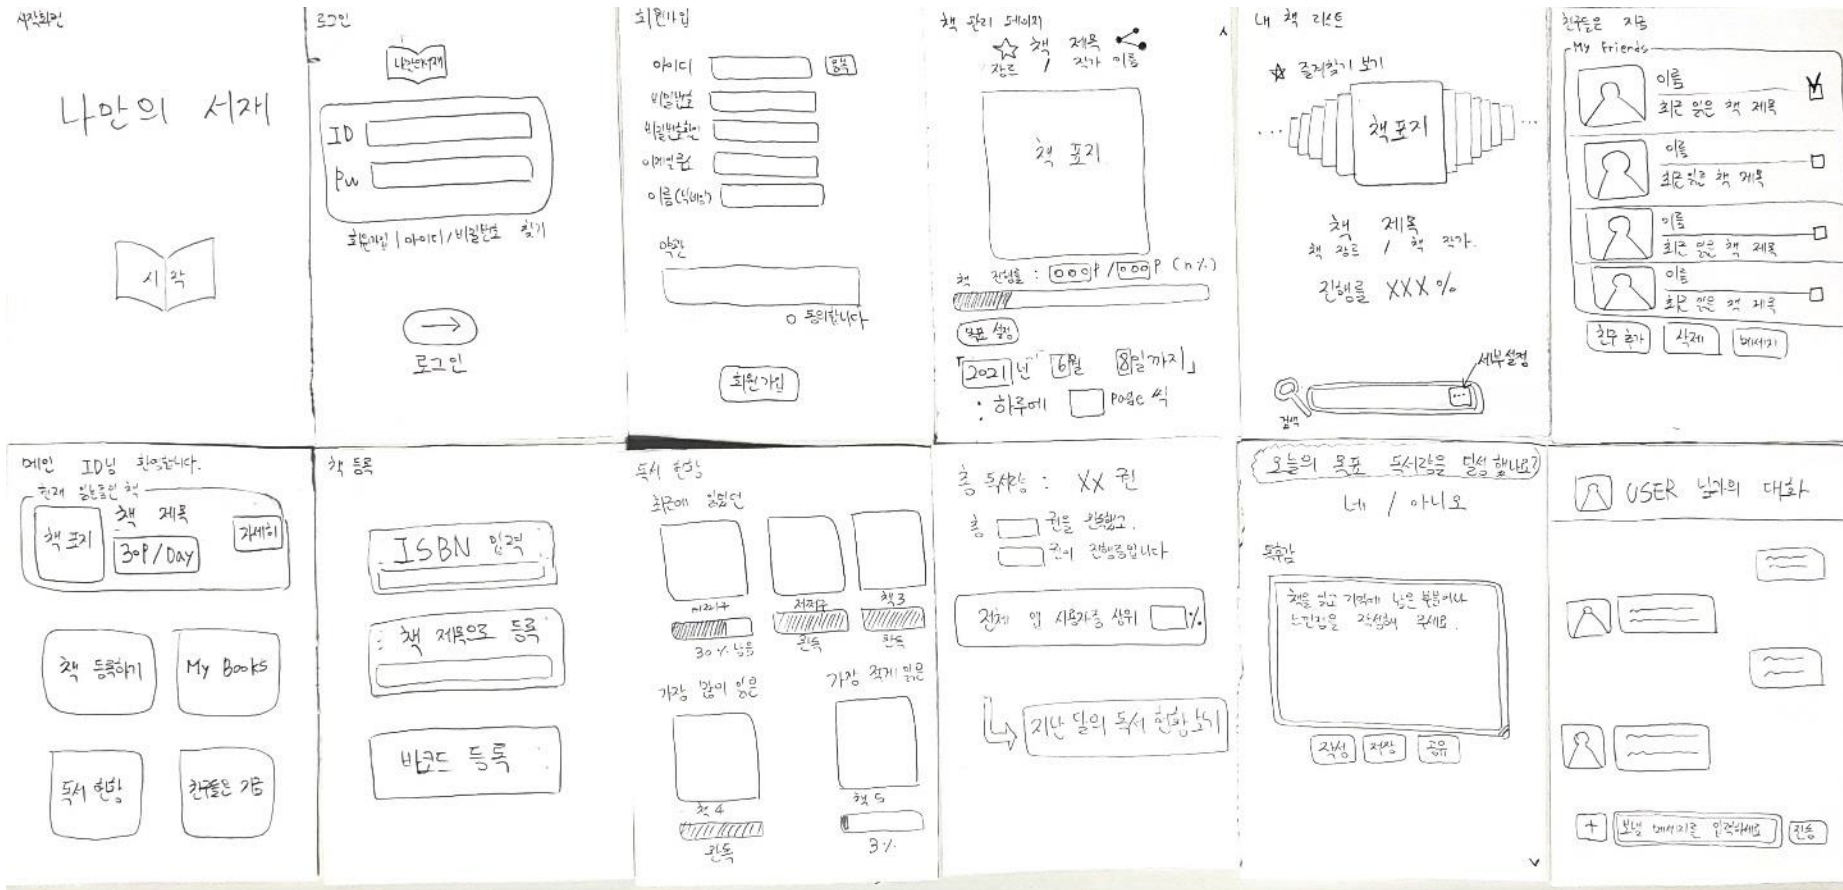 시작화면
나만의 서재
시작
로그인
나만의서재
ID
PW
회원가입 | 아이디/비밀번호 찾기
→
로그인
회원가입
아이디
중복
비밀번호
비밀번호확인
이메일주소
이름(닉네임)
약관
O 동의합니다
회원가입
책 관리 페이지
책 제목
장르 / 작가 이름
책 표지
책 진행률 : 000P / 000P (n%)
목표 설정
「2021년 6월 8일까지」
: 하루에 page 씩
내 책 리스트
☆ 즐겨찾기 보기
... 책 표지 ...
책 제목
책 장르 / 책 작가
진행률 XXX%
세부설정
...
검색
친구들은 지금
My Friends
이름
최근 읽은 책 제목
이름
최근 읽은 책 제목
이름
최근 읽은 책 제목
이름
최근 읽은 책 제목
친구 추가 삭제 메세지
메인 ID님 환영합니다.
현재 읽는중인 책
책 표지
책 제목
30P/Day
자세히
책 등록하기
My Books
독서 현황
친구들은 지금
책 등록
ISBN 입력
책 제목으로 등록
바코드 등록
독서 현황
최근에 읽었던
책3
30% 남음
완독
완독
가장 많이 읽은
가장 적게 읽은
책4
완독
책5
3%
총 독서량 : XX 권
총 권을 완독했고,
권이 진행중입니다
전체 앱 사용자중 상위 %
지난 달의 독서 현황 보기
오늘의 목표 독서량을 달성했나요?
네 / 아니오
독후감
책을 읽고 기억에 남은 부분이나
느낀점을 작성해 주세요.
작성 저장 공유
USER 님과의 대화
+
보낼 메세지를 입력하세요
전송